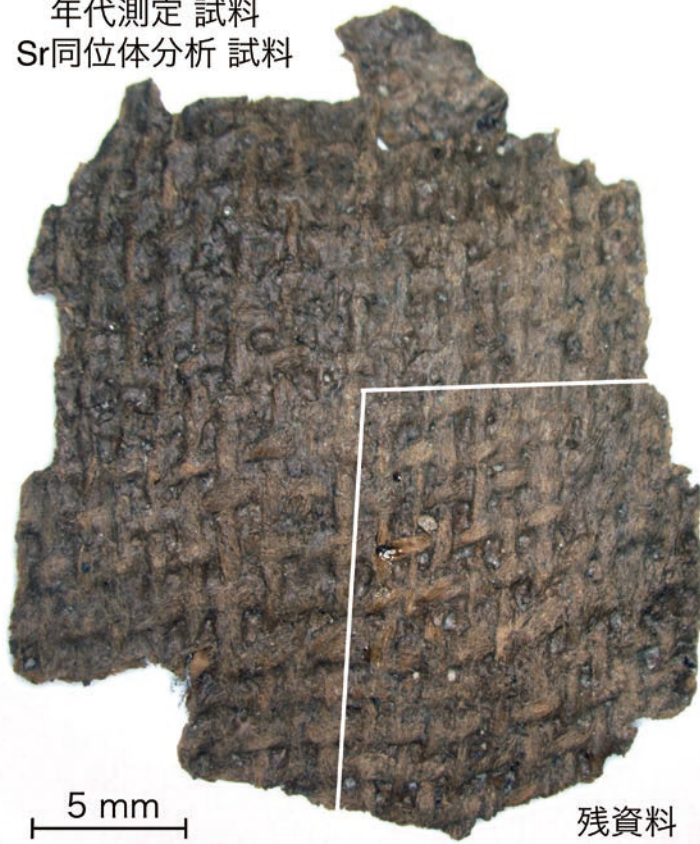 年代測定 試料
Sr同位体分析 試料
5 mm
残資料